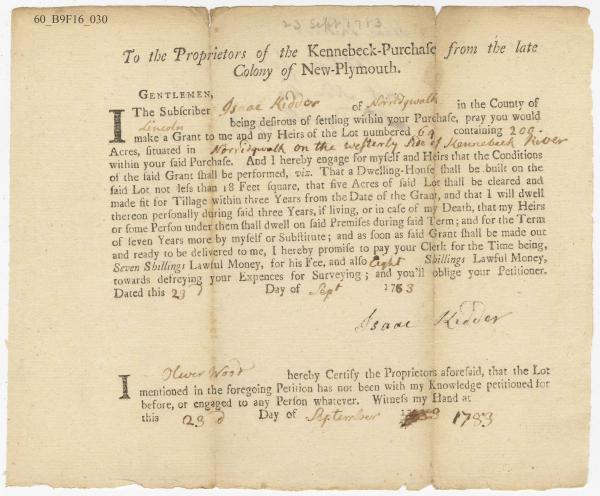 60_B9F16_030
23 Sept 1783
To the Proprietors of the Kennebeck-Purchaſe from the late
Colony of New-Plymouth.
GENTLEMEN,
I The Subſcriber Isaac Kidder of Norridgwalk in the County of
Lincoln being deſirous of ſettling within your Purchaſe, pray you would
make a Grant to me and my Heirs of the Lot numbered 69 containing 200
Acres, ſituated in Norridgwalk on the westerly Side of Kennebeck River
within your ſaid Purchaſe. And I hereby engage for myſelf and Heirs that the Conditions
of the ſaid Grant ſhall be performed, viz. That a Dwelling-Houſe ſhall be built on the
ſaid Lot not leſs than 18 Feet ſquare, that five Acres of ſaid Lot ſhall be cleared and
made fit for Tillage within three Years from the Date of the Grant, and that I will dwell
thereon perſonally during ſaid three Years, if living, or in caſe of my Death, that my Heirs
or ſome Perſon under them ſhall dwell on ſaid Premiſes during ſaid Term; and for the Term
of ſeven Years more by myſelf or Subſtitute; and as ſoon as ſaid Grant ſhall be made out
and ready to be delivered to me, I hereby promiſe to pay your Clerk for the Time being,
Seven Shillings Lawful Money, for his Fee, and alſo Eight Shillings Lawful Money,
towards defreying your Expences for Surveying; and you'll oblige your Petitioner.
Dated this 23d Day of Sept 1783
Isaac Kidder
I Oliver Wood hereby Certify the Proprietors aforeſaid, that the Lot
mentioned in the foregoing Petition has not been with my Knowledge petitioned for
before, or engaged to any Perſon whatever. Witneſs my Hand at
this 23d Day of September 1783